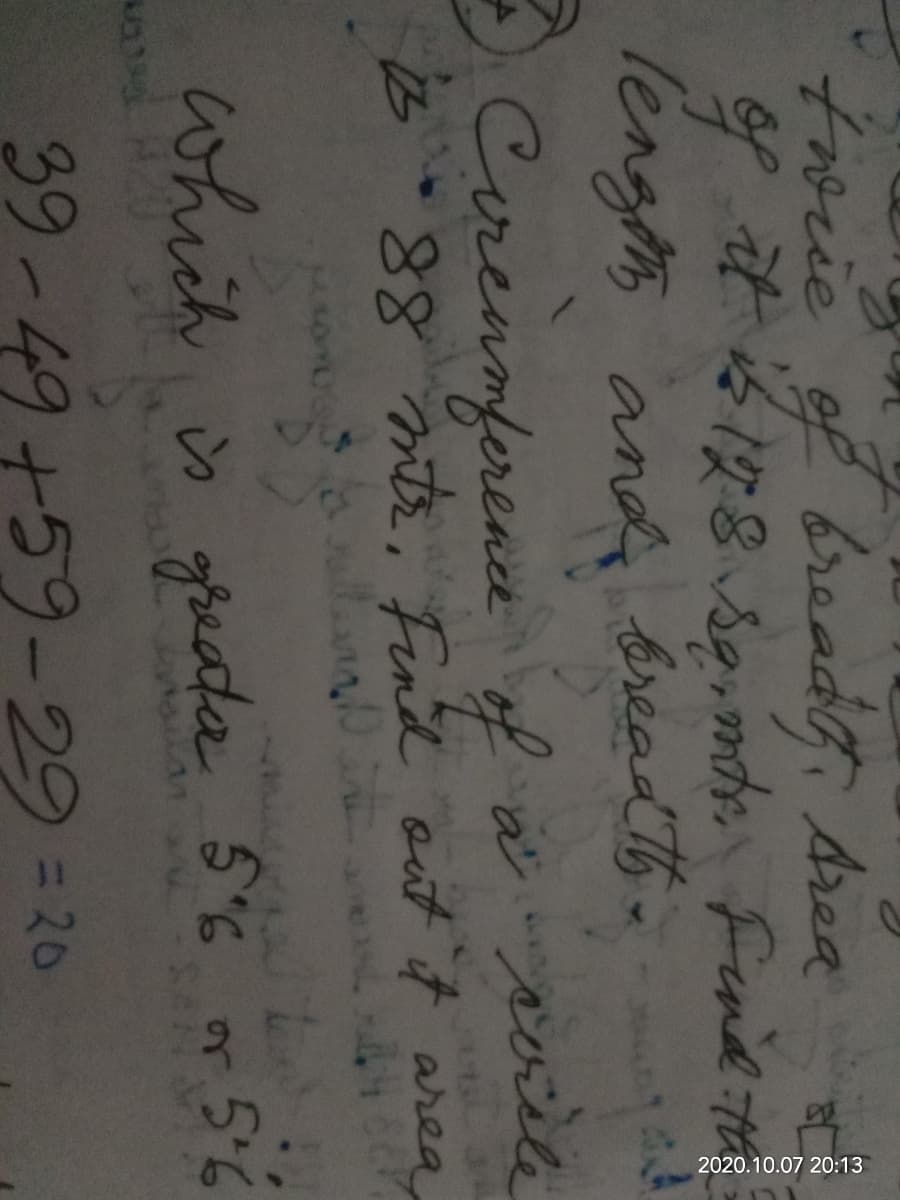 twice of breadth. Area
of it is 128 sq. mtr. Find the
length and breadth.
Circumference of a circle
is 88 mtr. Find out it area,
which is greater 5.6 or 5.6
39 - 49 + 59 - 29 = 20
2020.10.07 20:13